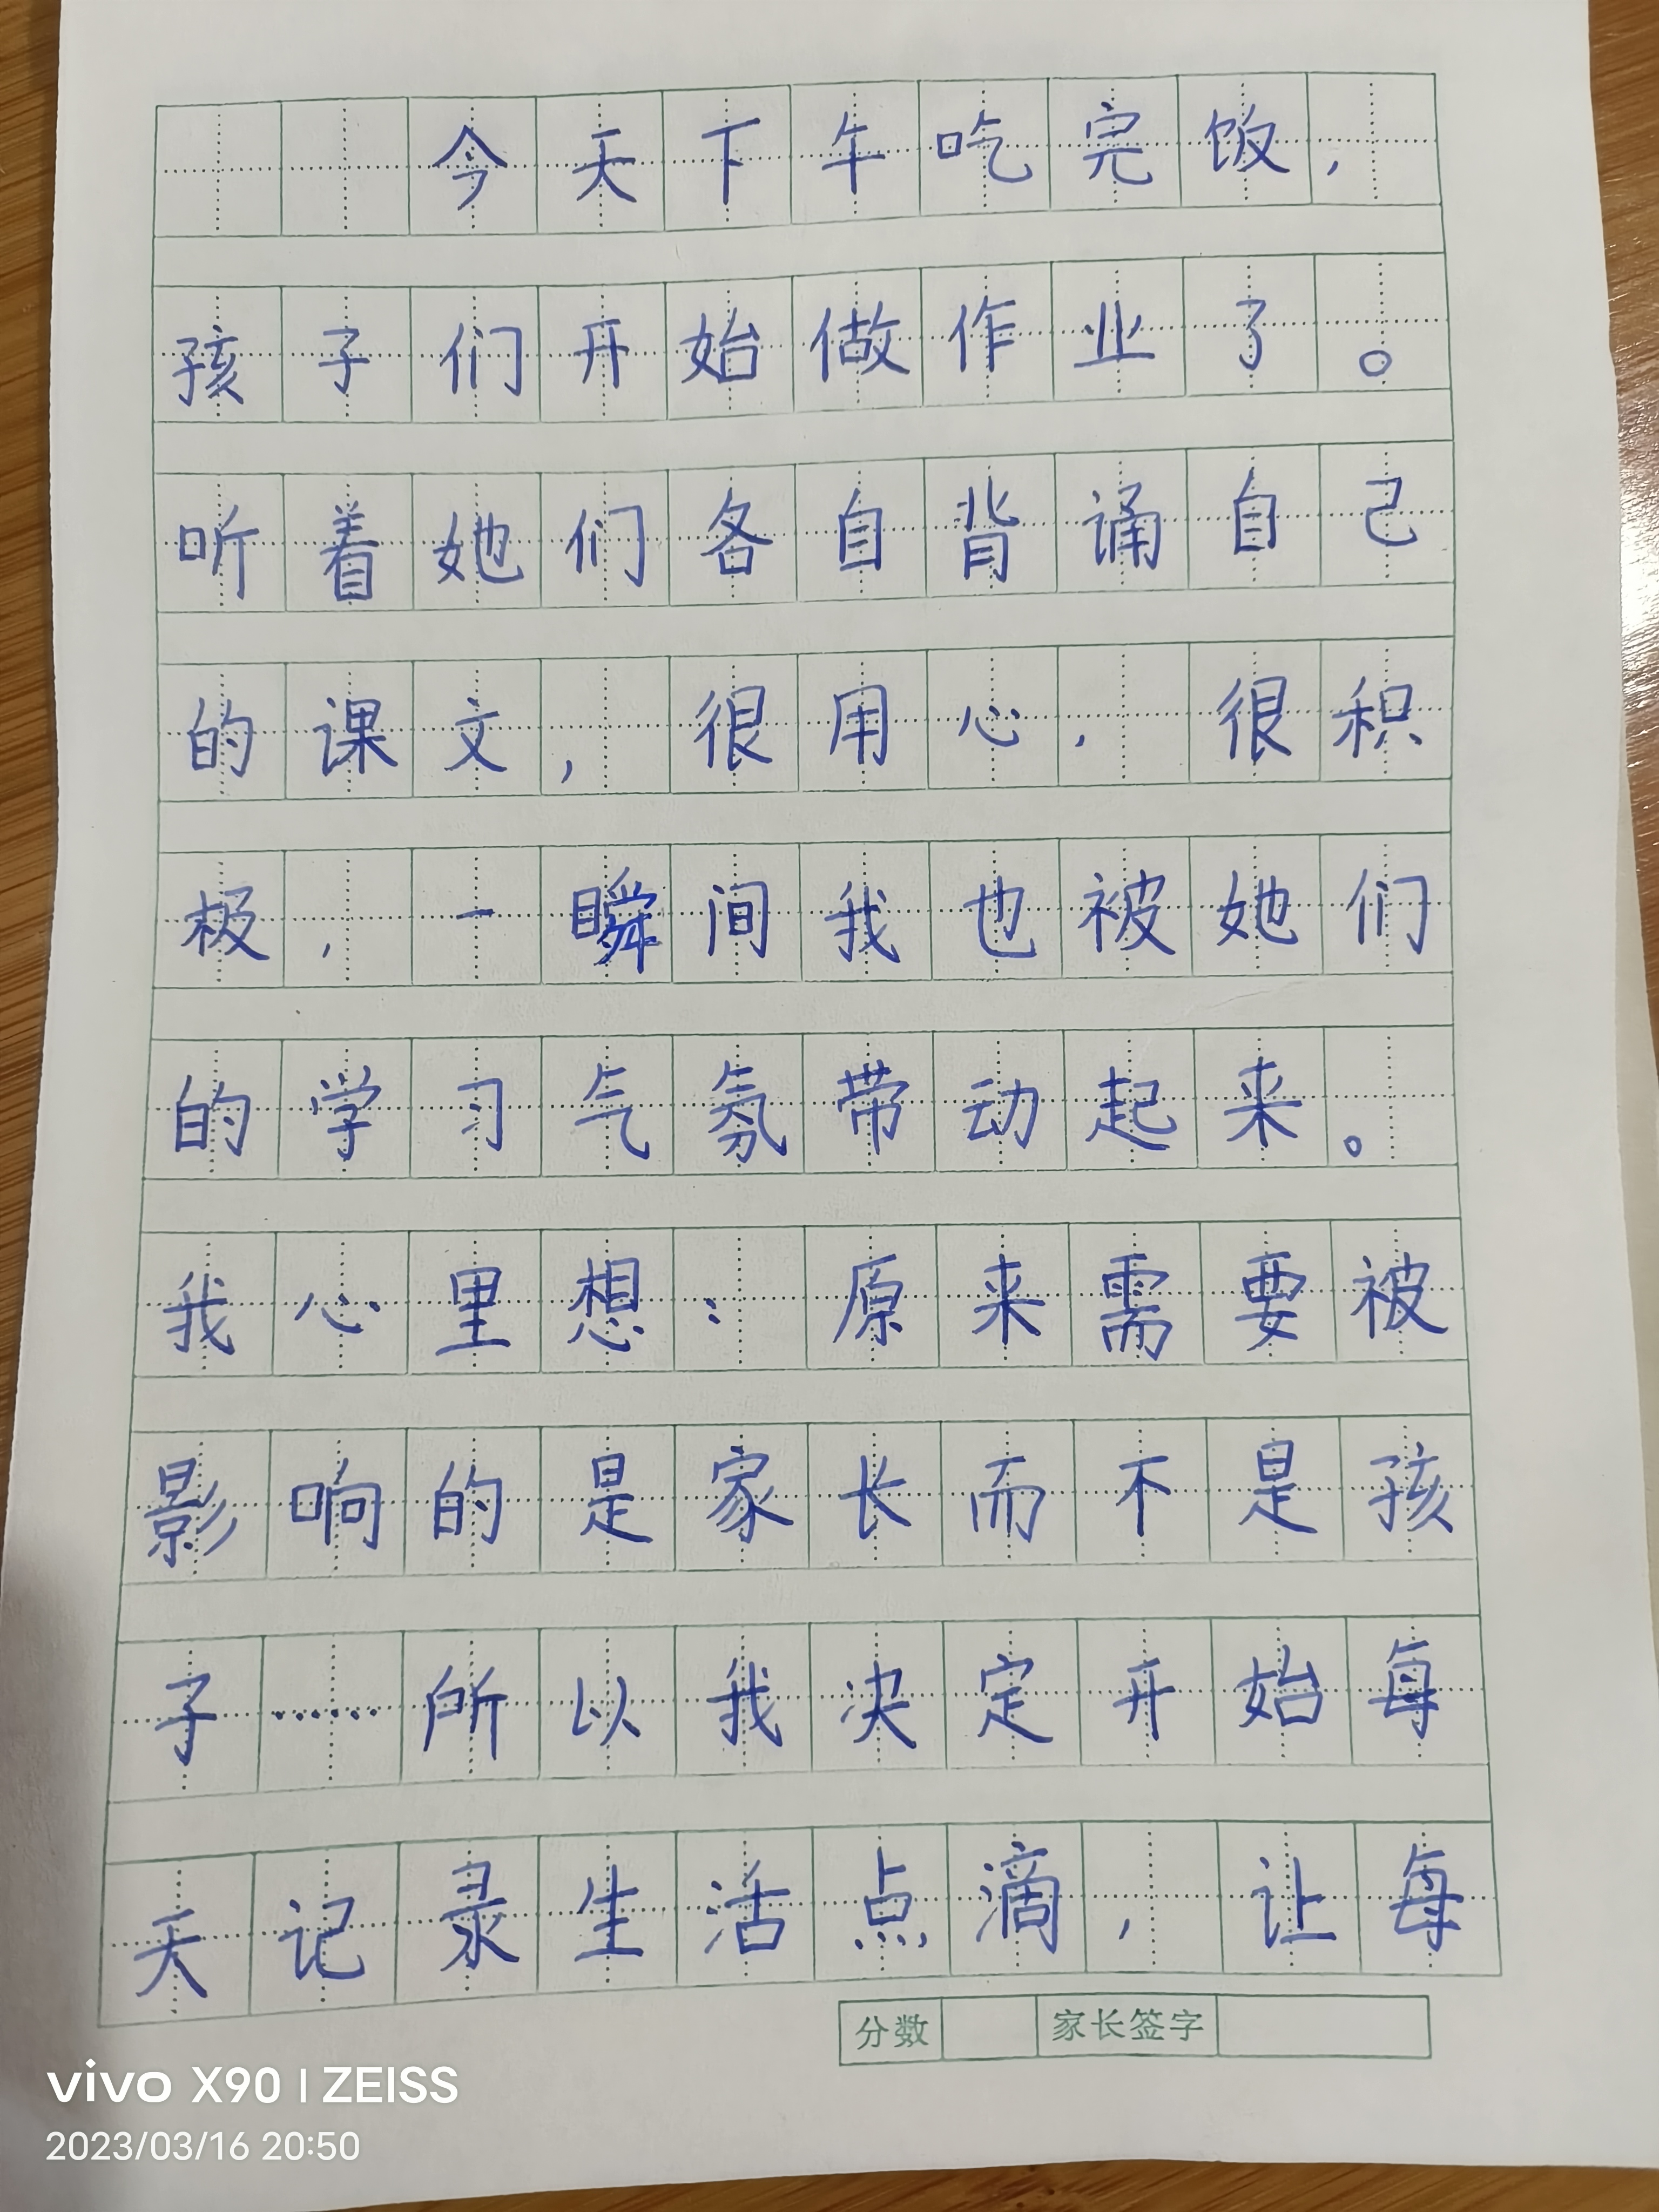 今天下午吃完饭，
孩子们开始做作业了。
听着她们各自背诵自己
的课文，很用心，很积
极，一瞬间我也被她们
的学习气氛带动起来。
我心里想：原来需要被
影响的是家长而不是孩
子……所以我决定开始每
天记录生活点滴，让每
分数 家长签字
vivo X90 | ZEISS
2023/03/16 20:50